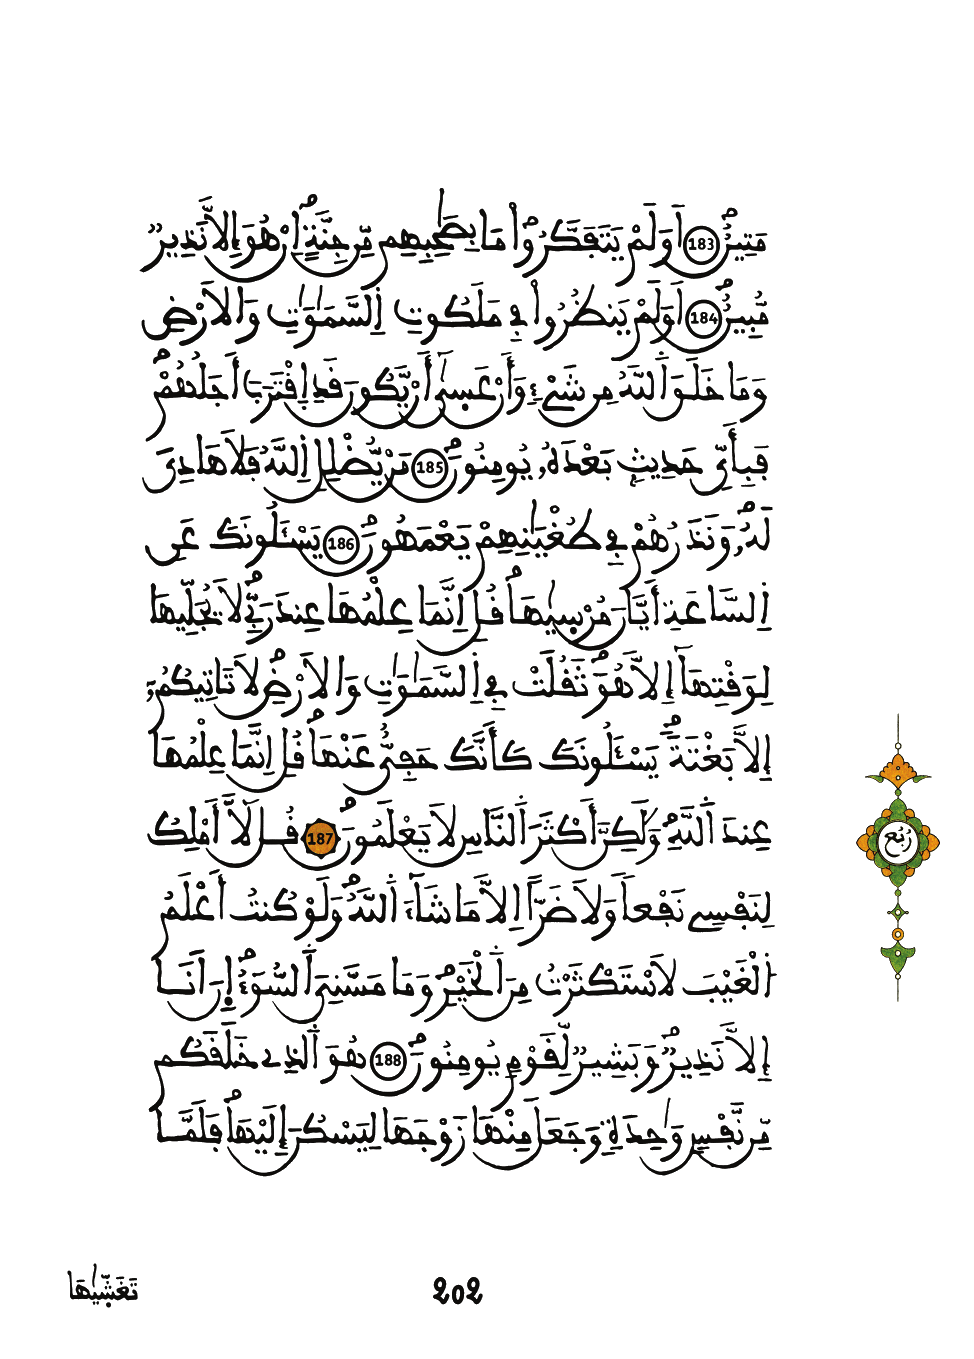 مَتِينٌ 183 اَوَلَمْ يَتَفَكَّرُواْ مَا بِصَٰحِبِهِم مِّن جِنَّةٍ اِنْ هُوَ إِلَّا نَذِيرٌ
مُّبِينٌ 184 اَوَلَمْ يَنظُرُواْ فِي مَلَكُوتِ اِ۬لسَّمَٰوَٰتِ وَالَارْضِ
وَمَا خَلَقَ اَ۬للَّهُ مِن شَيْءٍ وَأَنْ عَس۪ىٰٓ أَنْ يَّكُونَ قَدِ اِ۪قْتَرَبَ أَجَلُهُمْ
فَبِأَيِّ حَدِيثِۢ بَعْدَهُۥ يُومِنُونَ 185 مَنْ يُّضْلِلِ اِ۬للَّهُ فَلَا هَادِيَ
لَهُۥ وَنَذَرُهُمْ فِي طُغْيَٰنِهِمْ يَعْمَهُونَ 186 يَسْـَٔلُونَكَ عَنِ
اِ۬لسَّاعَةِ أَيَّانَ مُرْس۪يٰهَا قُلِ اِنَّمَا عِلْمُهَا عِندَ رَبِّي لَا يُجَلِّيهَا
لِوَقْتِهَآ إِلَّا هُوَ ثَقُلَتْ فِي اِ۬لسَّمَٰوَٰتِ وَالَارْضِ لَا تَاتِيكُمُۥٓ
إِلَّا بَغْتَةٗ يَسْـَٔلُونَكَ كَأَنَّكَ حَفِيٌّ عَنْهَا قُلِ اِنَّمَا عِلْمُهَا
عِندَ اَ۬للَّهِ وَلَٰكِنَّ أَكْثَرَ اَ۬لنَّاسِ لَا يَعْلَمُونَ 187 قُل لَّآ أَمْلِكُ
لِنَفْسِي نَفْعاً وَلَا ضَرّاً اِلَّا مَا شَآءَ اَ۬للَّهُ وَلَوْ كُنتُ أَعْلَمُ
اُ۬لْغَيْبَ لَاسْتَكْثَرْتُ مِنَ اَ۬لْخَيْرِ وَمَا مَسَّنِيَ اَ۬لسُّوٓءُ اِ۪نَ اَنَا
إِلَّا نَذِيرٌ وَبَشِيرٌ لِّقَوْمٍ يُومِنُونَ 188 هُوَ اَ۬لذِي خَلَقَكُم
مِّن نَّفْسٍ وَٰحِدَةٍ وَجَعَلَ مِنْهَا زَوْجَهَا لِيَسْكُنَ إِلَيْهَا فَلَمَّا
رُبُع
تَغَشّ۪يٰهَا
202